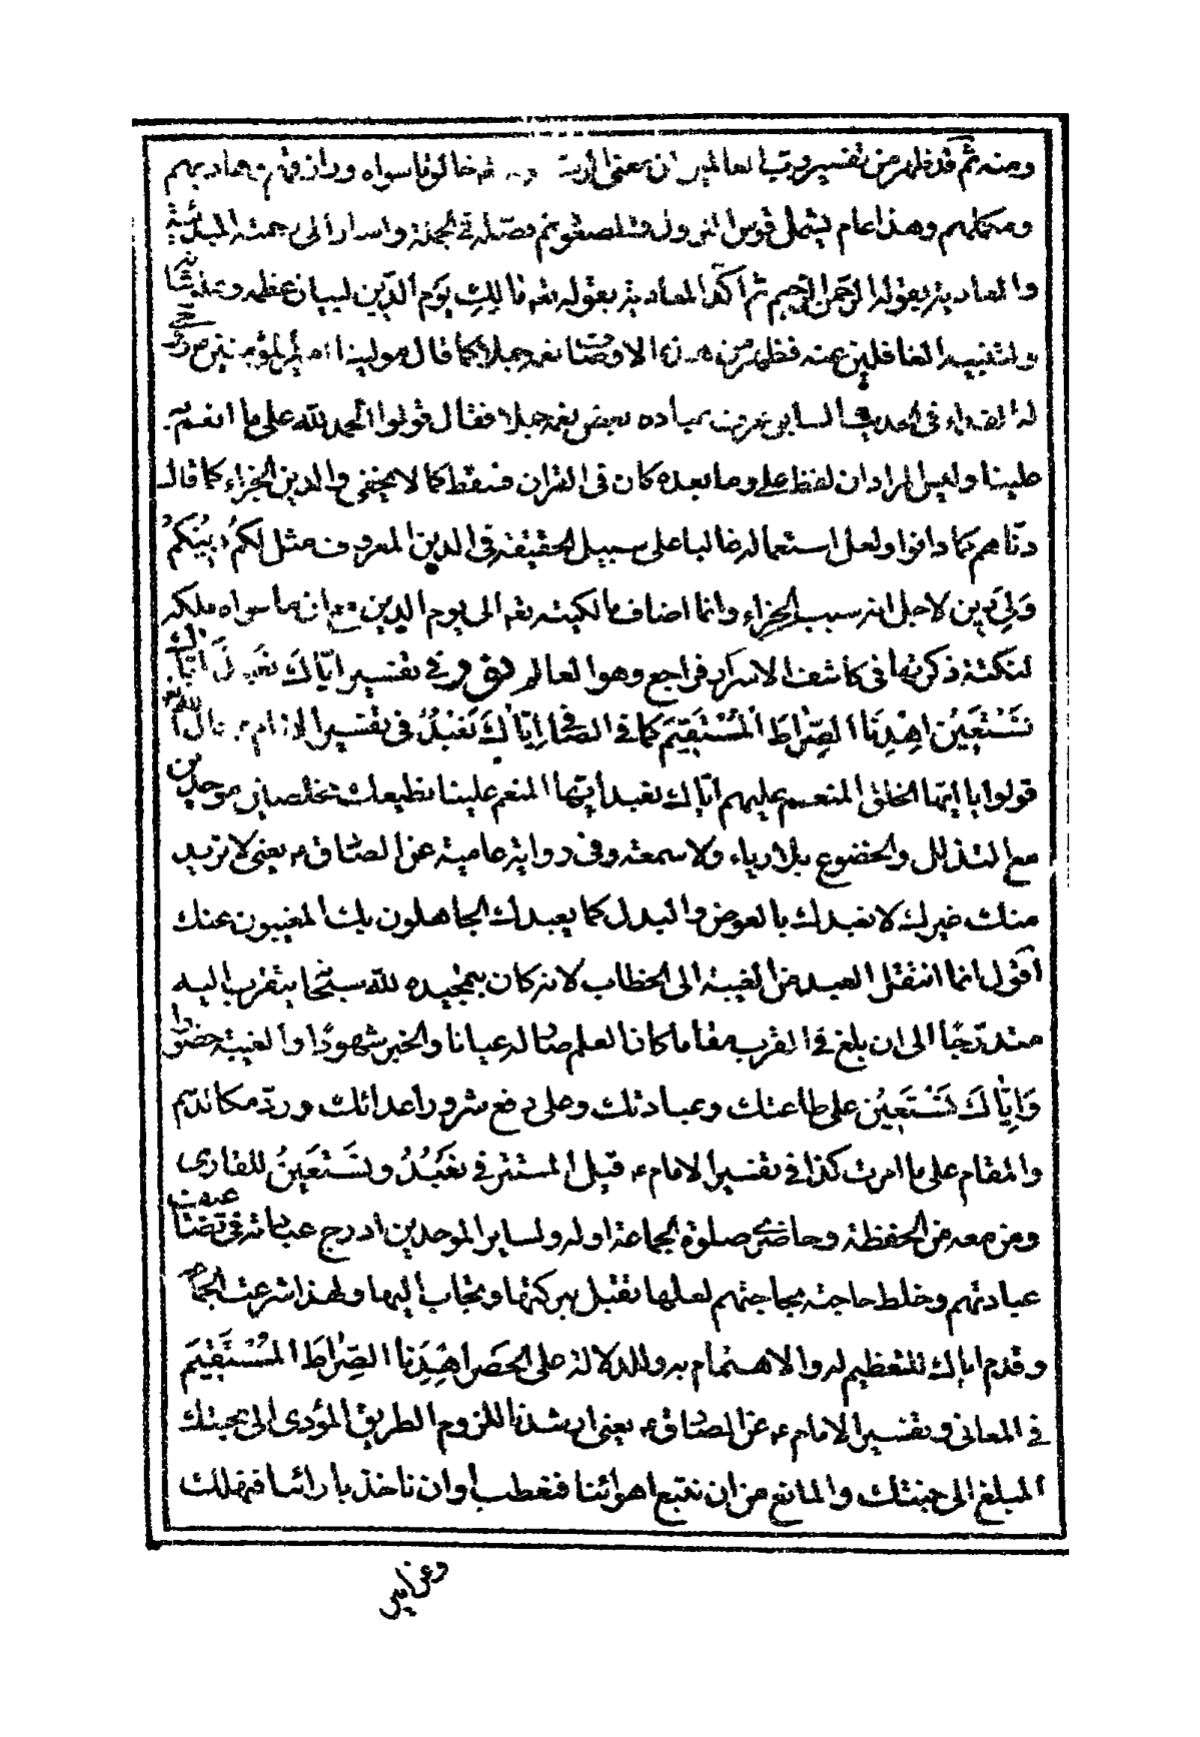 ومنه ثم قد ظهر من تفسير رب العالمين ان معنى خالق ما سواه ورازقهم وهاديهم
ومكملهم وهذا عام يشمل قوس النزول والصعود ثم فصله في الجملة واشار الى رحمته المبدئية
والمعادية بقوله الرحمن الرحيم ثم اكد المعادية بقوله تعه مالك يوم الدين لبيان عظمه
ولتنبيه الغافلين عنه فظهر من هذه الاوصاف نعمه جملا كما قال مولينا امير المؤمنين
له الفداء في الحديث السابق عرف عباده بعض نعمه جملا فقال قولوا الحمد لله على ما انعم
علينا وليس المراد ان لفظ على وما بعده كان في القران فسقط كما لا يخفى والدين الجزاء كما قال
دناهم كما دانوا ولعل استعماله غالبا على سبيل الحقيقة في الدين المعروف مثل لكم دينكم
ولي دين لاجل انه سبب الجزاء وانما اضاف مالكيته تعه الى يوم الدين مع ان ما سواه ملكه
لنكتة ذكرتها في كاشف الاسرار فراجع وهو العالم وفي تفسير اياك نعبد واياك
نستعين اهدنا الصراط المستقيم كما في الصافي اياك نعبد في تفسير الامام ع قال الله تعه
قولوا يا ايها الخلق المنعم عليهم اياك نعبد ايها المنعم علينا نطيعك مخلصين موحدين
مع التذلل والخضوع بلا رياء ولا سمعة وفي رواية عامية عن الصادق ع يعني لا نريد
منك غيرك لا نعبدك بالعوض والبدل كما يعبدك الجاهلون بك المغيبون عنك
اقول انما انتقل العبد من الغيبة الى الخطاب لانه كان بتمجيده لله سبحانه يتقرب اليه
متدرجا الى ان بلغ في القرب مقاما كان العلم صار له عيانا والخبر شهودا والغيبة حضورا
واياك نستعين على طاعتك وعبادتك وعلى دفع شرور اعدائك ورد مكائدهم
والمقام على ما امرت كذا في تفسير الامام ع قيل المستتر في نعبد ونستعين للقارى
ومن معه من الحفظة وحاضري صلوة الجماعة او له ولساير الموحدين ادرج عبادته في تضاعيف
عبادتهم وخلط حاجته بحاجتهم لعلها تقبل ببركتها وتجاب اليها ولهذا شرعت الجماعة
وقدم اياك للتعظيم له والاهتمام به وللدلالة على الحصر اهدنا الصراط المستقيم
في المعاني وتفسير الامام ع عن الصادق ع يعني ارشدنا للزوم الطريق المؤدى الى محبتك
المبلغ الى جنتك والمانع من ان نتبع اهوائنا فنعطب او ان ناخذ بارائنا فنهلك
وعن امير